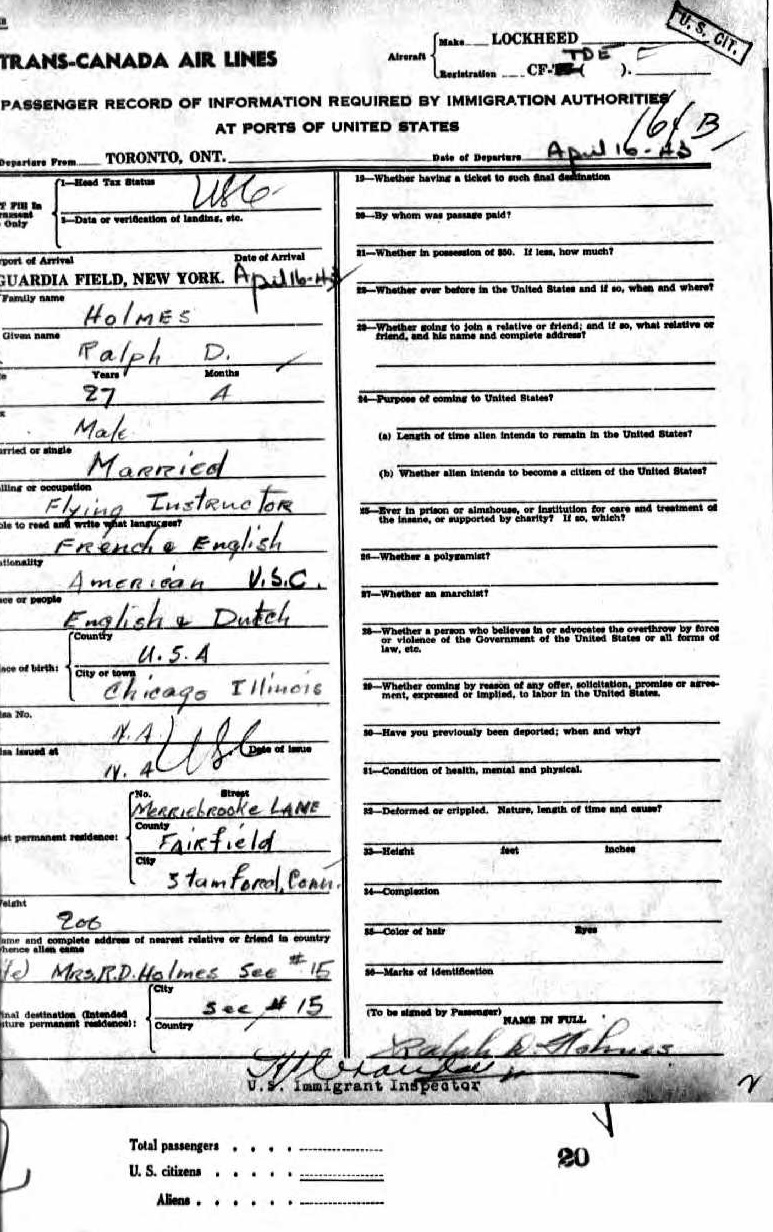 Make LOCKHEED
U. S. CIT.
TRANS-CANADA AIR LINES
Aircraft
TDE
Registration CF- ( ).
PASSENGER RECORD OF INFORMATION REQUIRED BY IMMIGRATION AUTHORITIES
AT PORTS OF UNITED STATES
16/B
Departure From TORONTO, ONT.
Date of Departure April 16-43
1—Head Tax Status
USC
T Fill In
Only
2—Data or verification of landing, etc.
port of Arrival
Date of Arrival
GUARDIA FIELD, NEW YORK. April 16-43
Family name
Holmes
Given name
Ralph D.
Years Months
27 4
Male
arried or single
Married
lling or occupation
Flying Instructor
ble to read and write what languages?
French & English
ationality
American U.S.C.
ace or people
English & Dutch
Country
U.S.A
ace of birth:
City or town
Chicago Illinois
isa No.
N.A
USC
isa issued at
Date of Issue
N.A
No. Street
Merriebrooke LANE
st permanent residence:
County
Fairfield
City
Stamford, Conn.
eight
200
ame and complete address of nearest relative or friend in country
whence alien came
fe) Mrs. R.D. Holmes See #15
City
See #15
inal destination (Intended
uture permanent residence):
Country
19—Whether having a ticket to such final destination
20—By whom was passage paid?
21—Whether in possession of $50. If less, how much?
22—Whether ever before in the United States and if so, when and where?
23—Whether going to join a relative or friend; and if so, what relative or
friend, and his name and complete address?
24—Purpose of coming to United States?
(a) Length of time alien intends to remain in the United States?
(b) Whether alien intends to become a citizen of the United States?
25—Ever in prison or almshouse, or institution for care and treatment of
the insane, or supported by charity? If so, which?
26—Whether a polygamist?
27—Whether an anarchist?
28—Whether a person who believes in or advocates the overthrow by force
or violence of the Government of the United States or all forms of
law, etc.
29—Whether coming by reason of any offer, solicitation, promise or agree-
ment, expressed or implied, to labor in the United States.
30—Have you previously been deported; when and why?
31—Condition of health, mental and physical.
32—Deformed or crippled. Nature, length of time and cause?
33—Height feet inches
34—Complexion
35—Color of hair Eyes
36—Marks of identification
(To be signed by Passenger)
NAME IN FULL
Ralph D. Holmes
U.S. Immigrant Inspector
Total passengers
U. S. citizens
Aliens
20